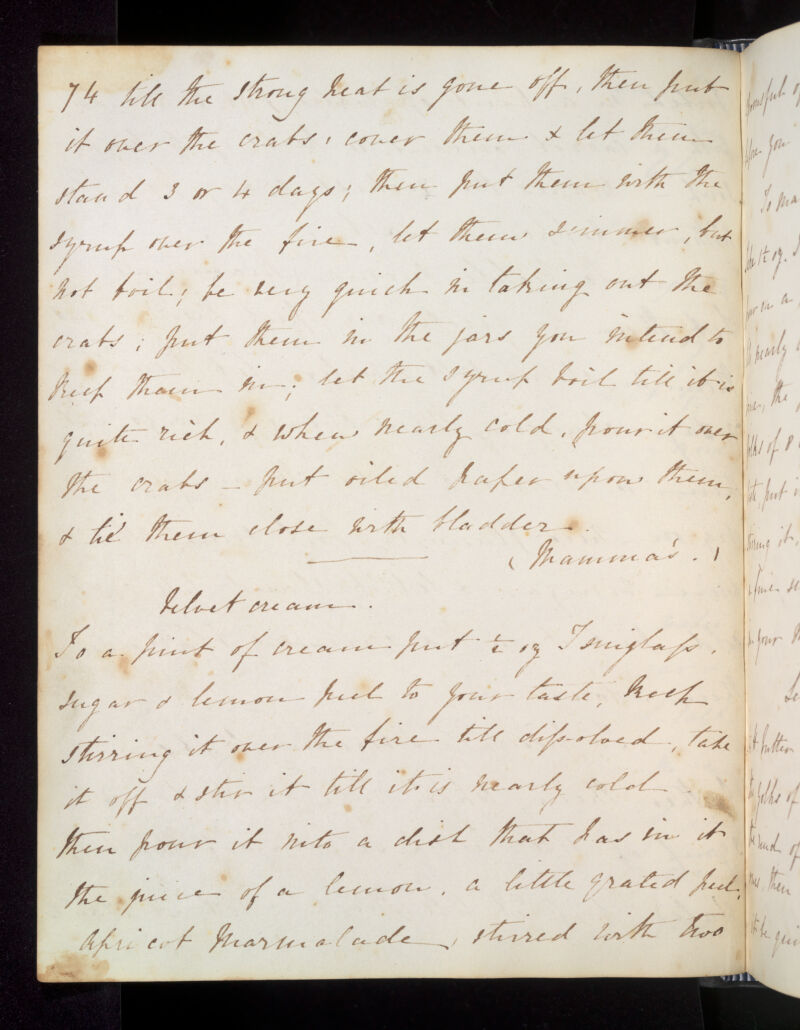 74 till the strong heat is gone off, then put
it over the crabs, cover them & let them
stand 3 or 4 days; then put them with the
syrup over the fire, let them simmer, but
not boil; be very quick in taking out the
crabs; put them in the jars you intend to
keep them in; let the syrup boil till it is
quite rich, & when nearly cold, pour it over
the crabs – put oiled paper upon them,
& tie them close with bladder.
(Mamma's.)
Velvet cream.
To a pint of cream put ½ oz Isinglass,
sugar & lemon peel to your taste, keep
stirring it over the fire till dissolved, take
it off & stir it till it is nearly cold
then pour it into a dish that has in it
the juice of a lemon, a little grated peel,
apricot Marmalade, stirred with two